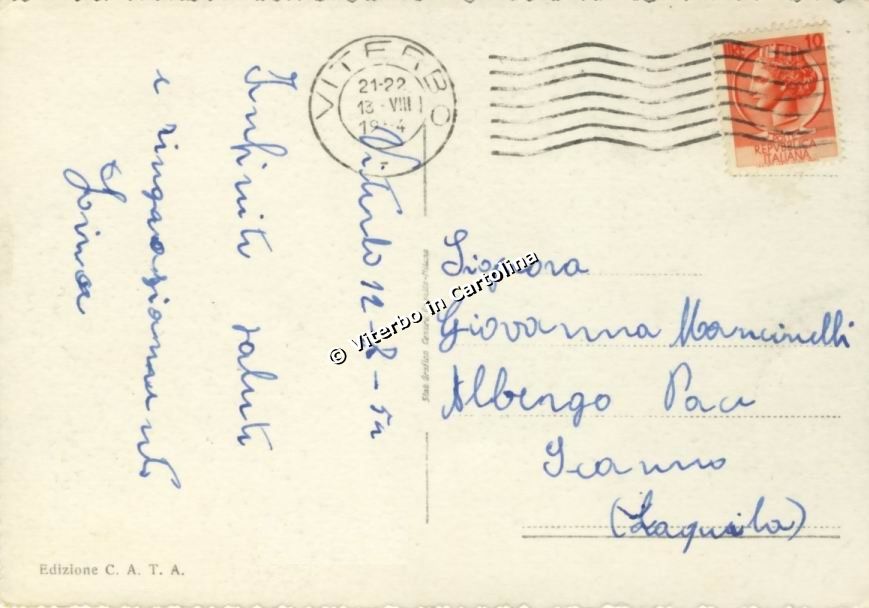 VITERBO
21-22
13-VIII
19 4
LIRE 10
POSTE
REPVBBLICA
ITALIANA
Viterbo 12-8-54
Infiniti saluti
e ringraziamenti
Signora
Giovanna Mancinelli
Albergo Pace
Scanno
(Laquila)
Edizione C. A. T. A.
© Viterbo in Cartolina